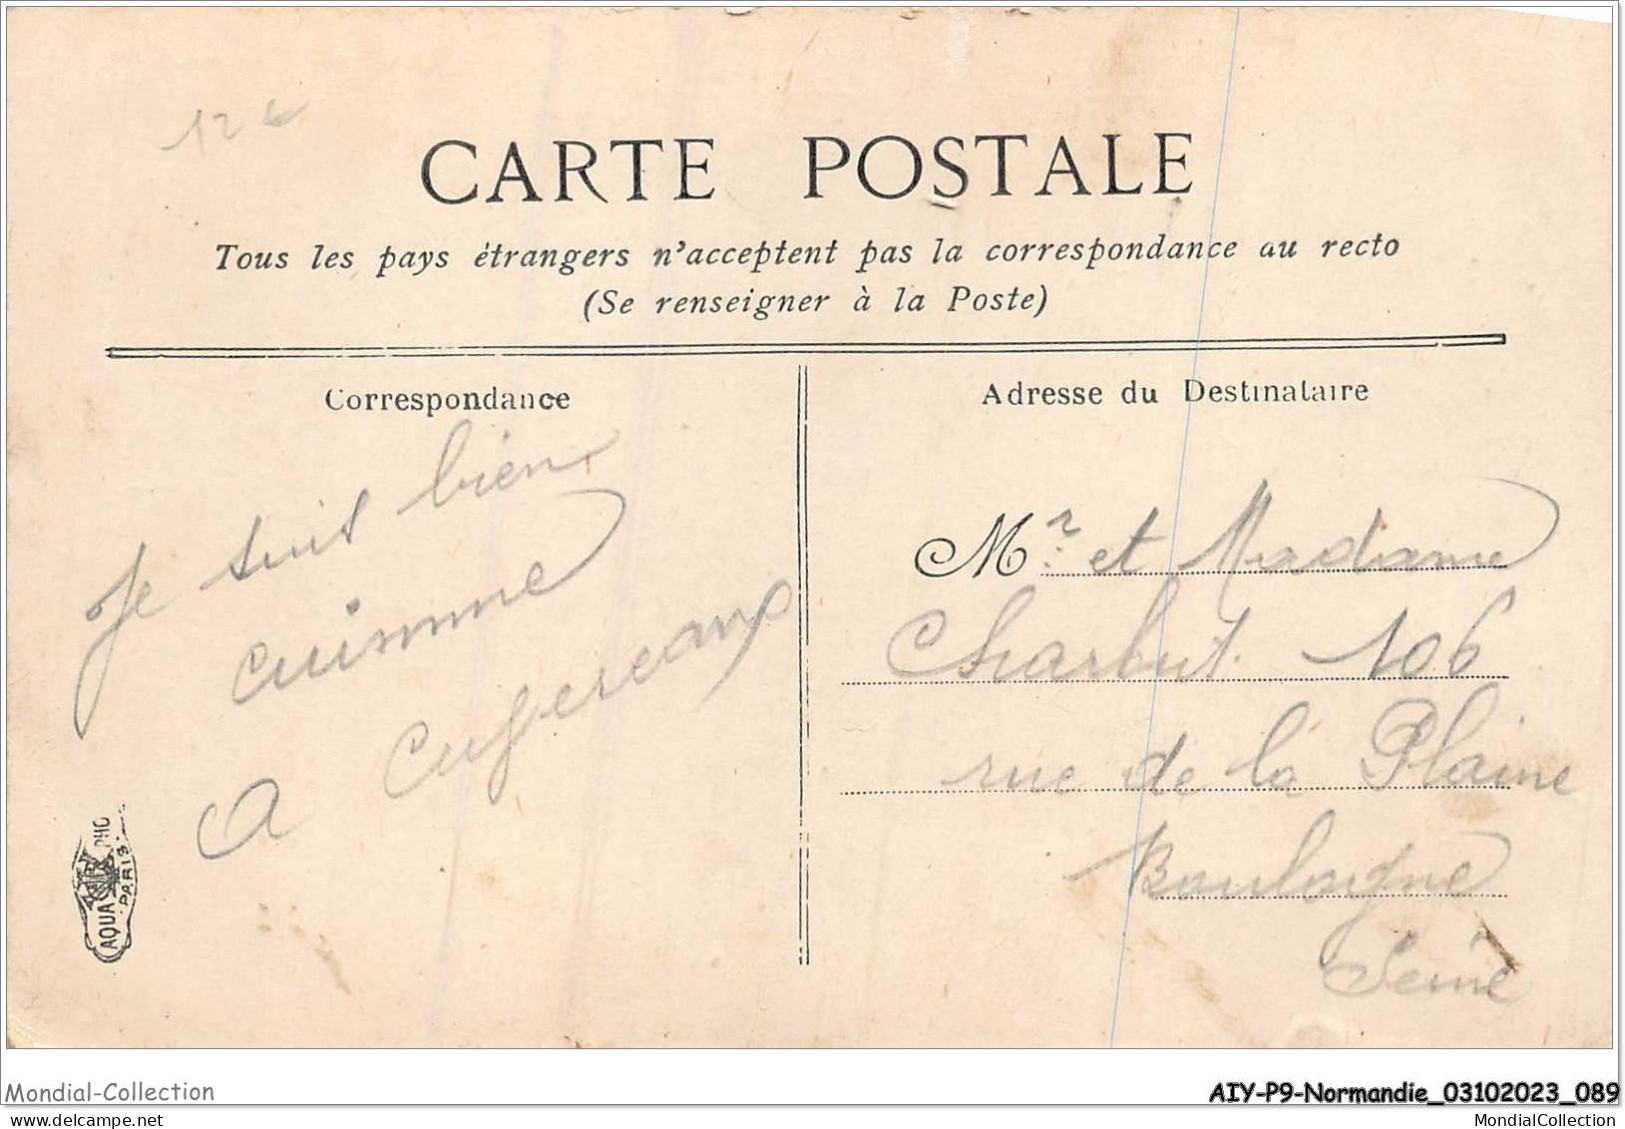 126
CARTE POSTALE
Tous les pays étrangers n'acceptent pas la correspondance au recto
(Se renseigner à la Poste)
Correspondance
Je suis bien
A
Adresse du Destinataire
Mr. et Madame
Charbut. 106
rue de la Plaine
Boulogne
Seine
AQUA PHO
PARIS
Mondial-Collection
AIY-P9-Normandie_03102023_089
MondialCollection